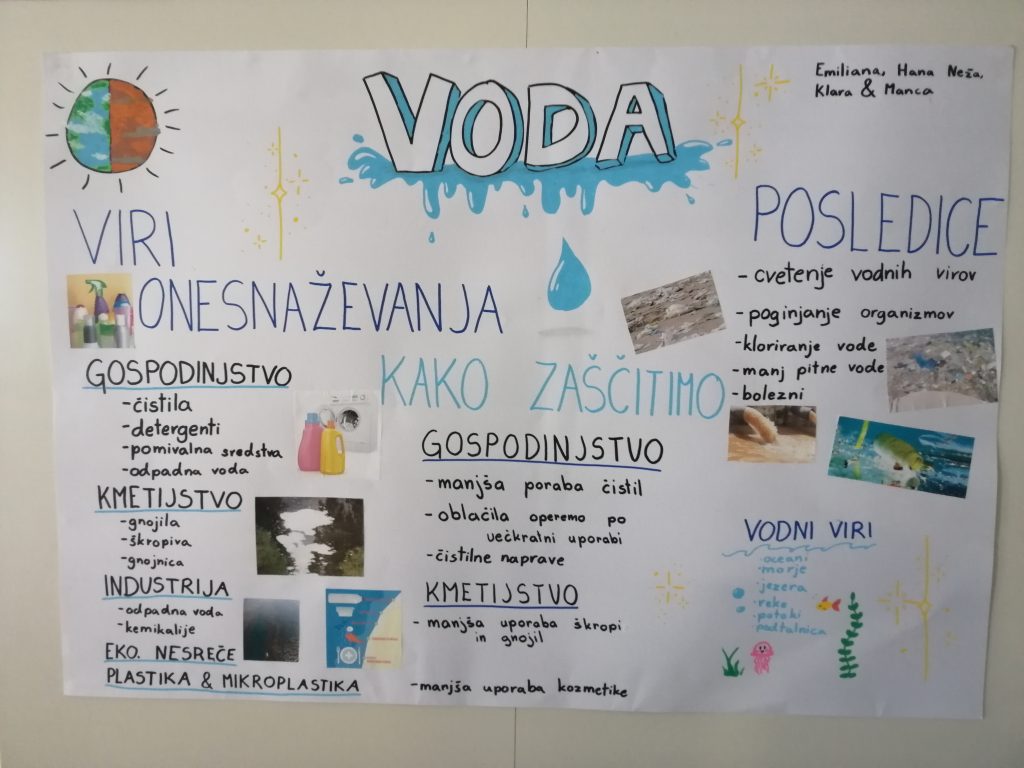 VODA
Emiliana, Hana Neža,
Klara & Manca
VIRI
ONESNAŽEVANJA
GOSPODINJSTVO
-čistila
-detergenti
-pomivalna sredstva
-odpadna voda
KMETIJSTVO
-gnojila
-škropiva
-gnojnica
INDUSTRIJA
-odpadna voda
-kemikalije
EKO. NESREČE
PLASTIKA & MIKROPLASTIKA
KAKO ZAŠČITIMO
GOSPODINJSTVO
-manjša poraba čistil
-oblačila operemo po
večkratni uporabi
-čistilne naprave
KMETIJSTVO
-manjša uporaba škropi
in gnojil
-manjša uporaba kozmetike
POSLEDICE
-cvetenje vodnih virov
-poginjanje organizmov
-kloriranje vode
-manj pitne vode
-bolezni
VODNI VIRI
·oceani
·morje
·jezera
·reke
·potoki
·podtalnica